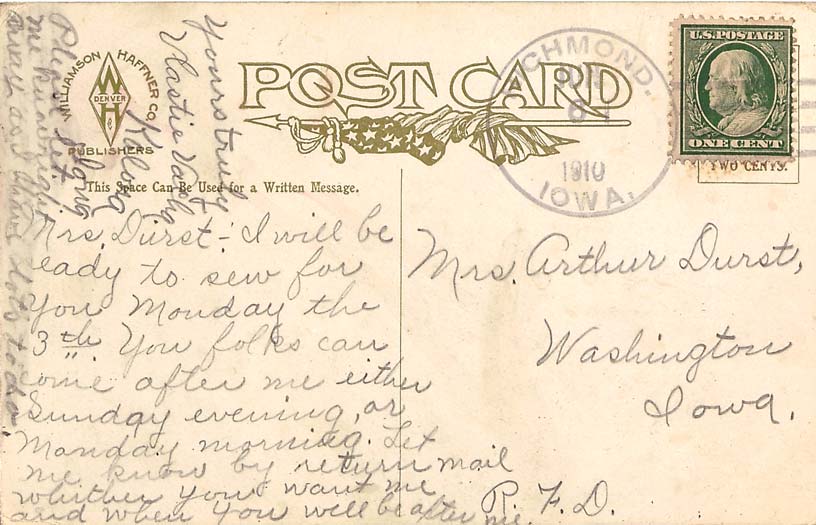 POST CARD
WILLIAMSON HAFFNER CO.
W
DENVER
H
PUBLISHERS
This Space Can Be Used for a Written Message.
U.S. POSTAGE
ONE CENT
TWO CENTS.
RICHMOND.
1910
IOWA.
Mrs. Durst:- I will be
ready to sew for
you Monday the
3th You folks can
come after me either
Sunday evening, or
Monday morning. Let
me know by return mail
whither you want me
and when you will be after me.
Please let
me know right
away as I have lots to do.
Yours truly
Kalona
Iowa
Mrs. Arthur Durst,
Washington
Iowa.
R. F. D.